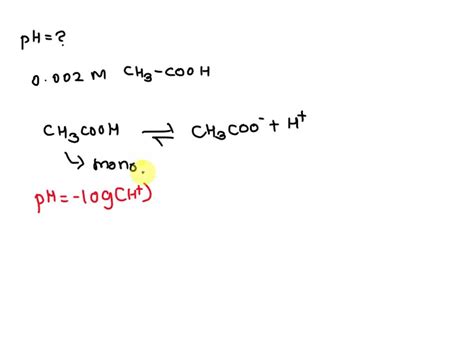 pH = ?
0.002 M CH3-COOH
CH3COOH ⇌ CH3COO⁻ + H⁺
↳ mono.
pH = -log(H⁺)